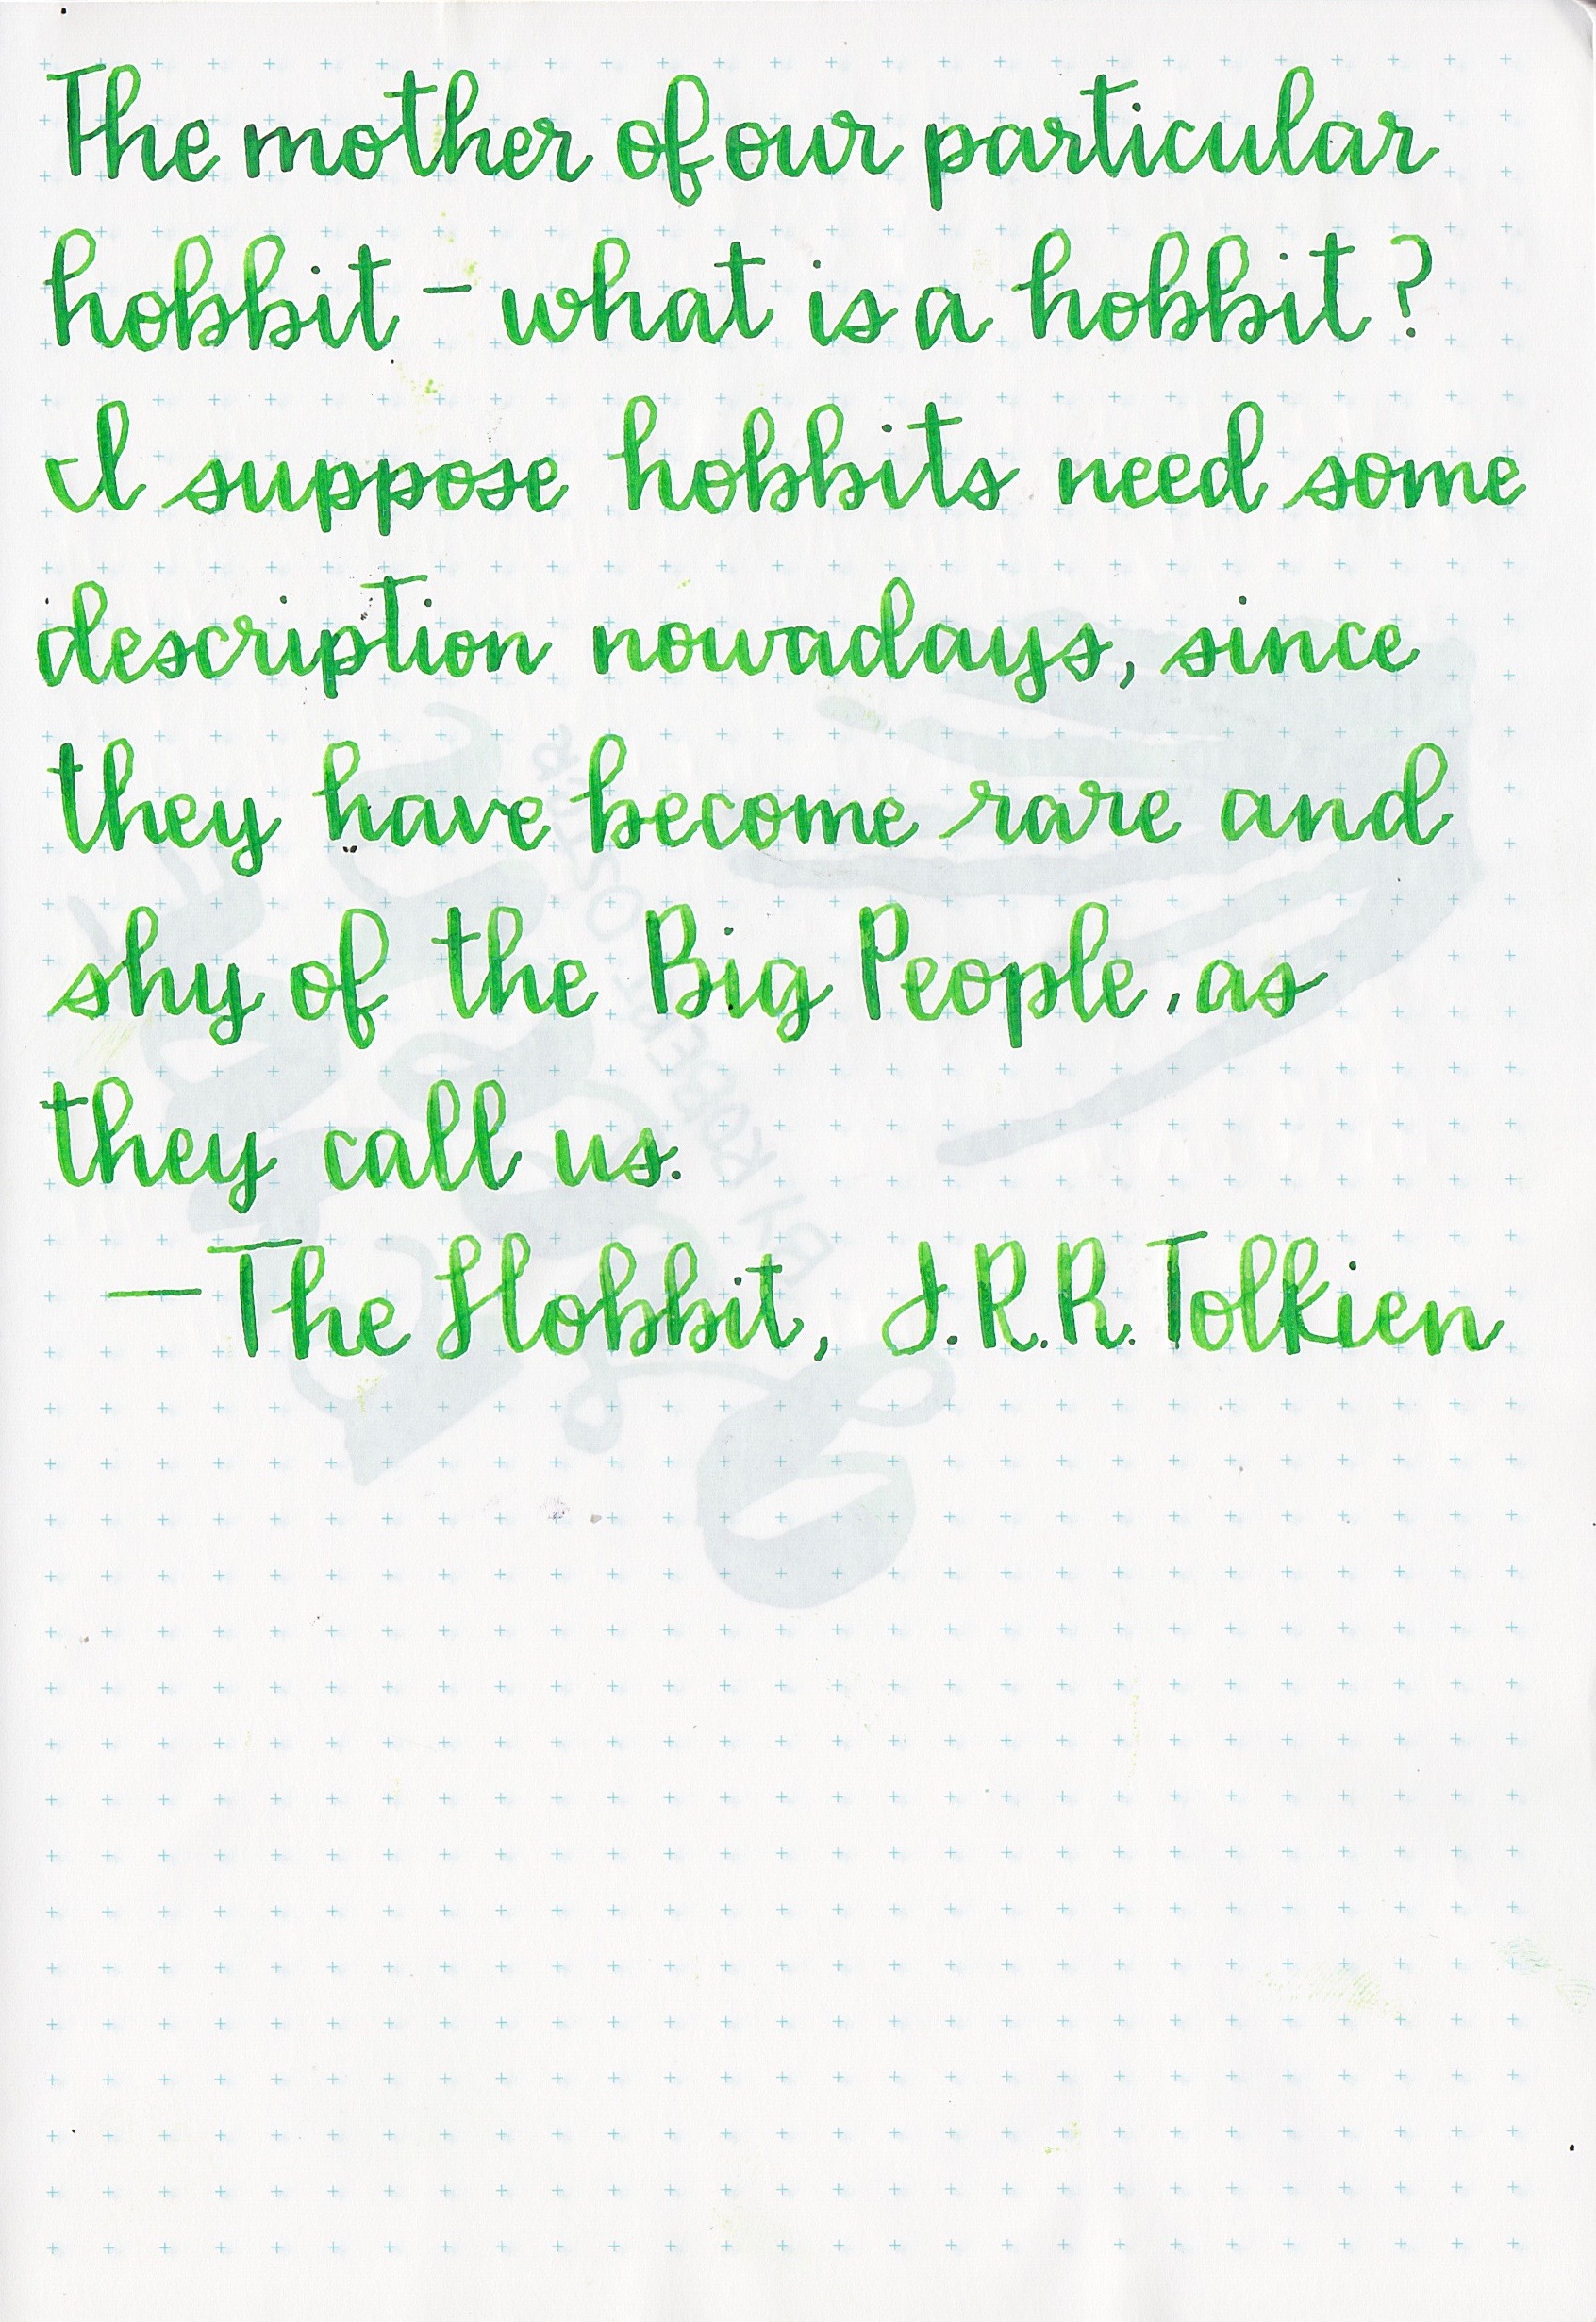 The mother of our particular
hobbit - what is a hobbit?
I suppose hobbits need some
description nowadays, since
they have become rare and
shy of the Big People, as
they call us.
—The Hobbit, J.R.R. Tolkien